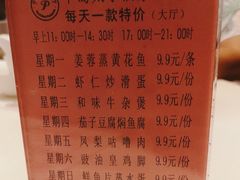 每天一款特价（大厅）
早上11:00时-14:30时 17:00时-21:00时
星期一 姜蓉蒸黄花鱼 9.9元/条
星期二 虾仁炒滑蛋 9.9元/份
星期三 和味牛杂煲 9.9元/份
星期四 茄子豆腐焖鱼腐 9.9元/份
星期五 凤梨咕噜肉 9.9元/份
星期六 豉油皇鸡脚 9.9元/份
星期日 鲜鱼片蒸水蛋 9.9元/份